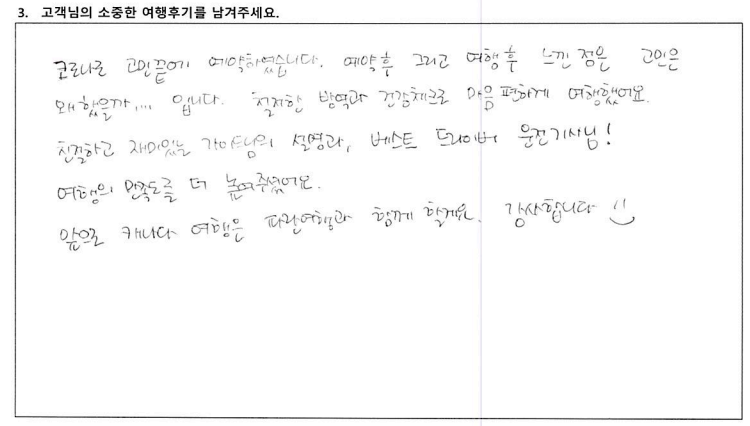 3. 고객님의 소중한 여행후기를 남겨주세요.
코로나로 고민끝에 예약하였습니다. 예약후 그리고 여행후 느낀 점은 고민은
왜 했을까.... 입니다. 철저한 방역과 건강체크로 마음 편하게 여행했어요.
친절하고 재미있는 가이드님의 설명과, 베스트 드라이버 운전기사님!
여행의 만족도를 더 높여주셨어요.
앞으로 캐나다 여행은 파란여행과 함께 할게요. 감사합니다 :)